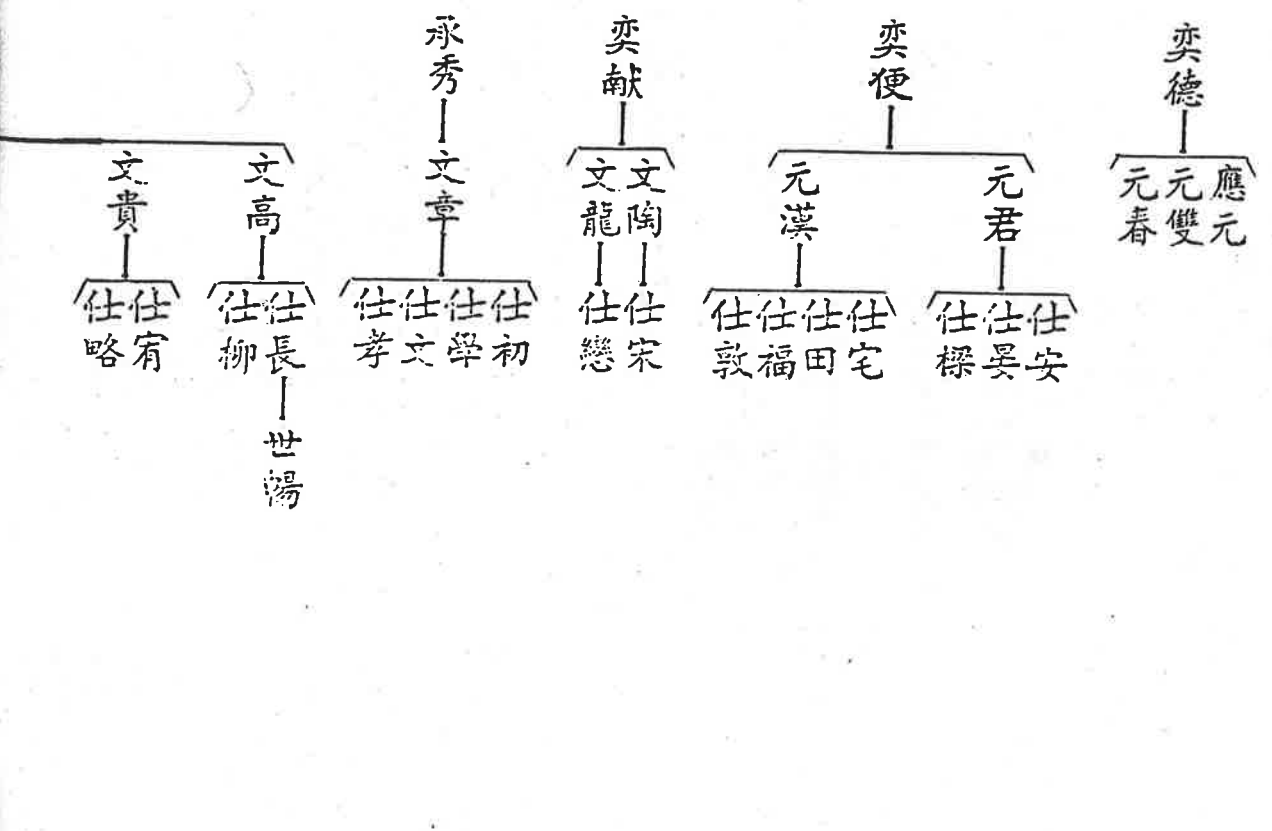 奕德
應元
元雙
元春
奕便
元君
仕安
仕晏
仕樑
元漢
仕宅
仕田
仕福
仕敦
奕献
文陶
仕宋
文龍
仕戀
承秀
文章
仕初
仕學
仕文
仕孝
文高
仕長
世鴻
仕柳
文貴
仕宥
仕略